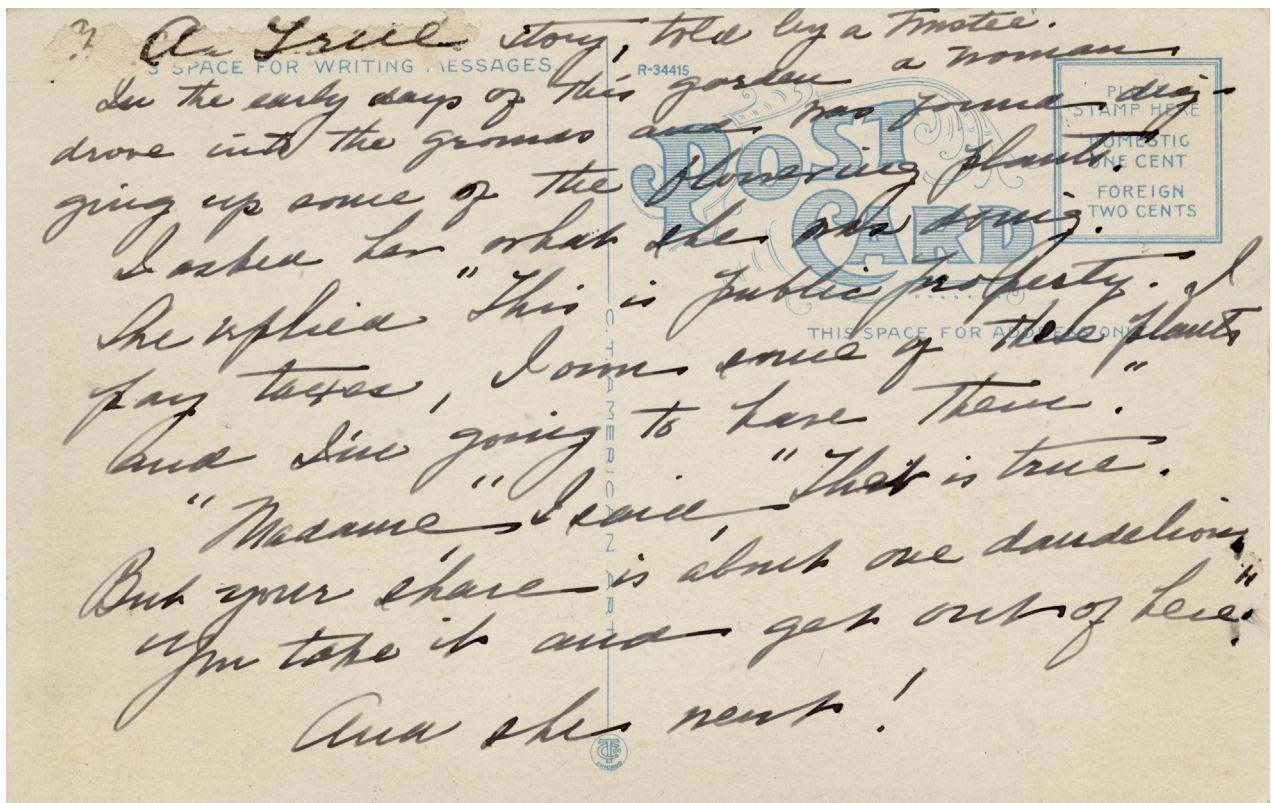 ? A True story, told by a Trustee.
In the early days of this garden a woman
drove into the grounds and was found dig-
ging up some of the flowering plants."
I asked her what she was doing.
She replied "This is public property. I
pay taxes, I own some of these plants
and I'm going to have them."
"Madame," I said, "That is true.
But your share is about one dandelion,
You take it and get out of here."
And she went!
S SPACE FOR WRITING MESSAGES
R-34415
POST CARD
PLACE
STAMP HERE
DOMESTIC
ONE CENT
FOREIGN
TWO CENTS
THIS SPACE FOR ADDRESS ONLY
C. T. AMERICAN ART
CHICAGO